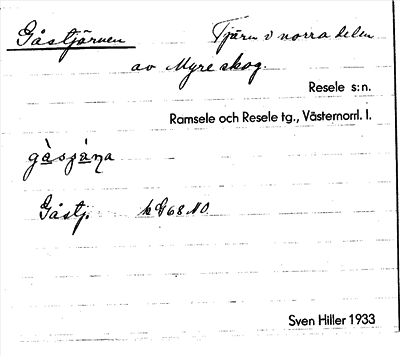 Gåstjärnen Tjärn i norra delen
av Myre skog.
Resele s:n.
Ramsele och Resele tg., Västernorrl. l.
Gåstj. k G68 NO
Sven Hiller 1933